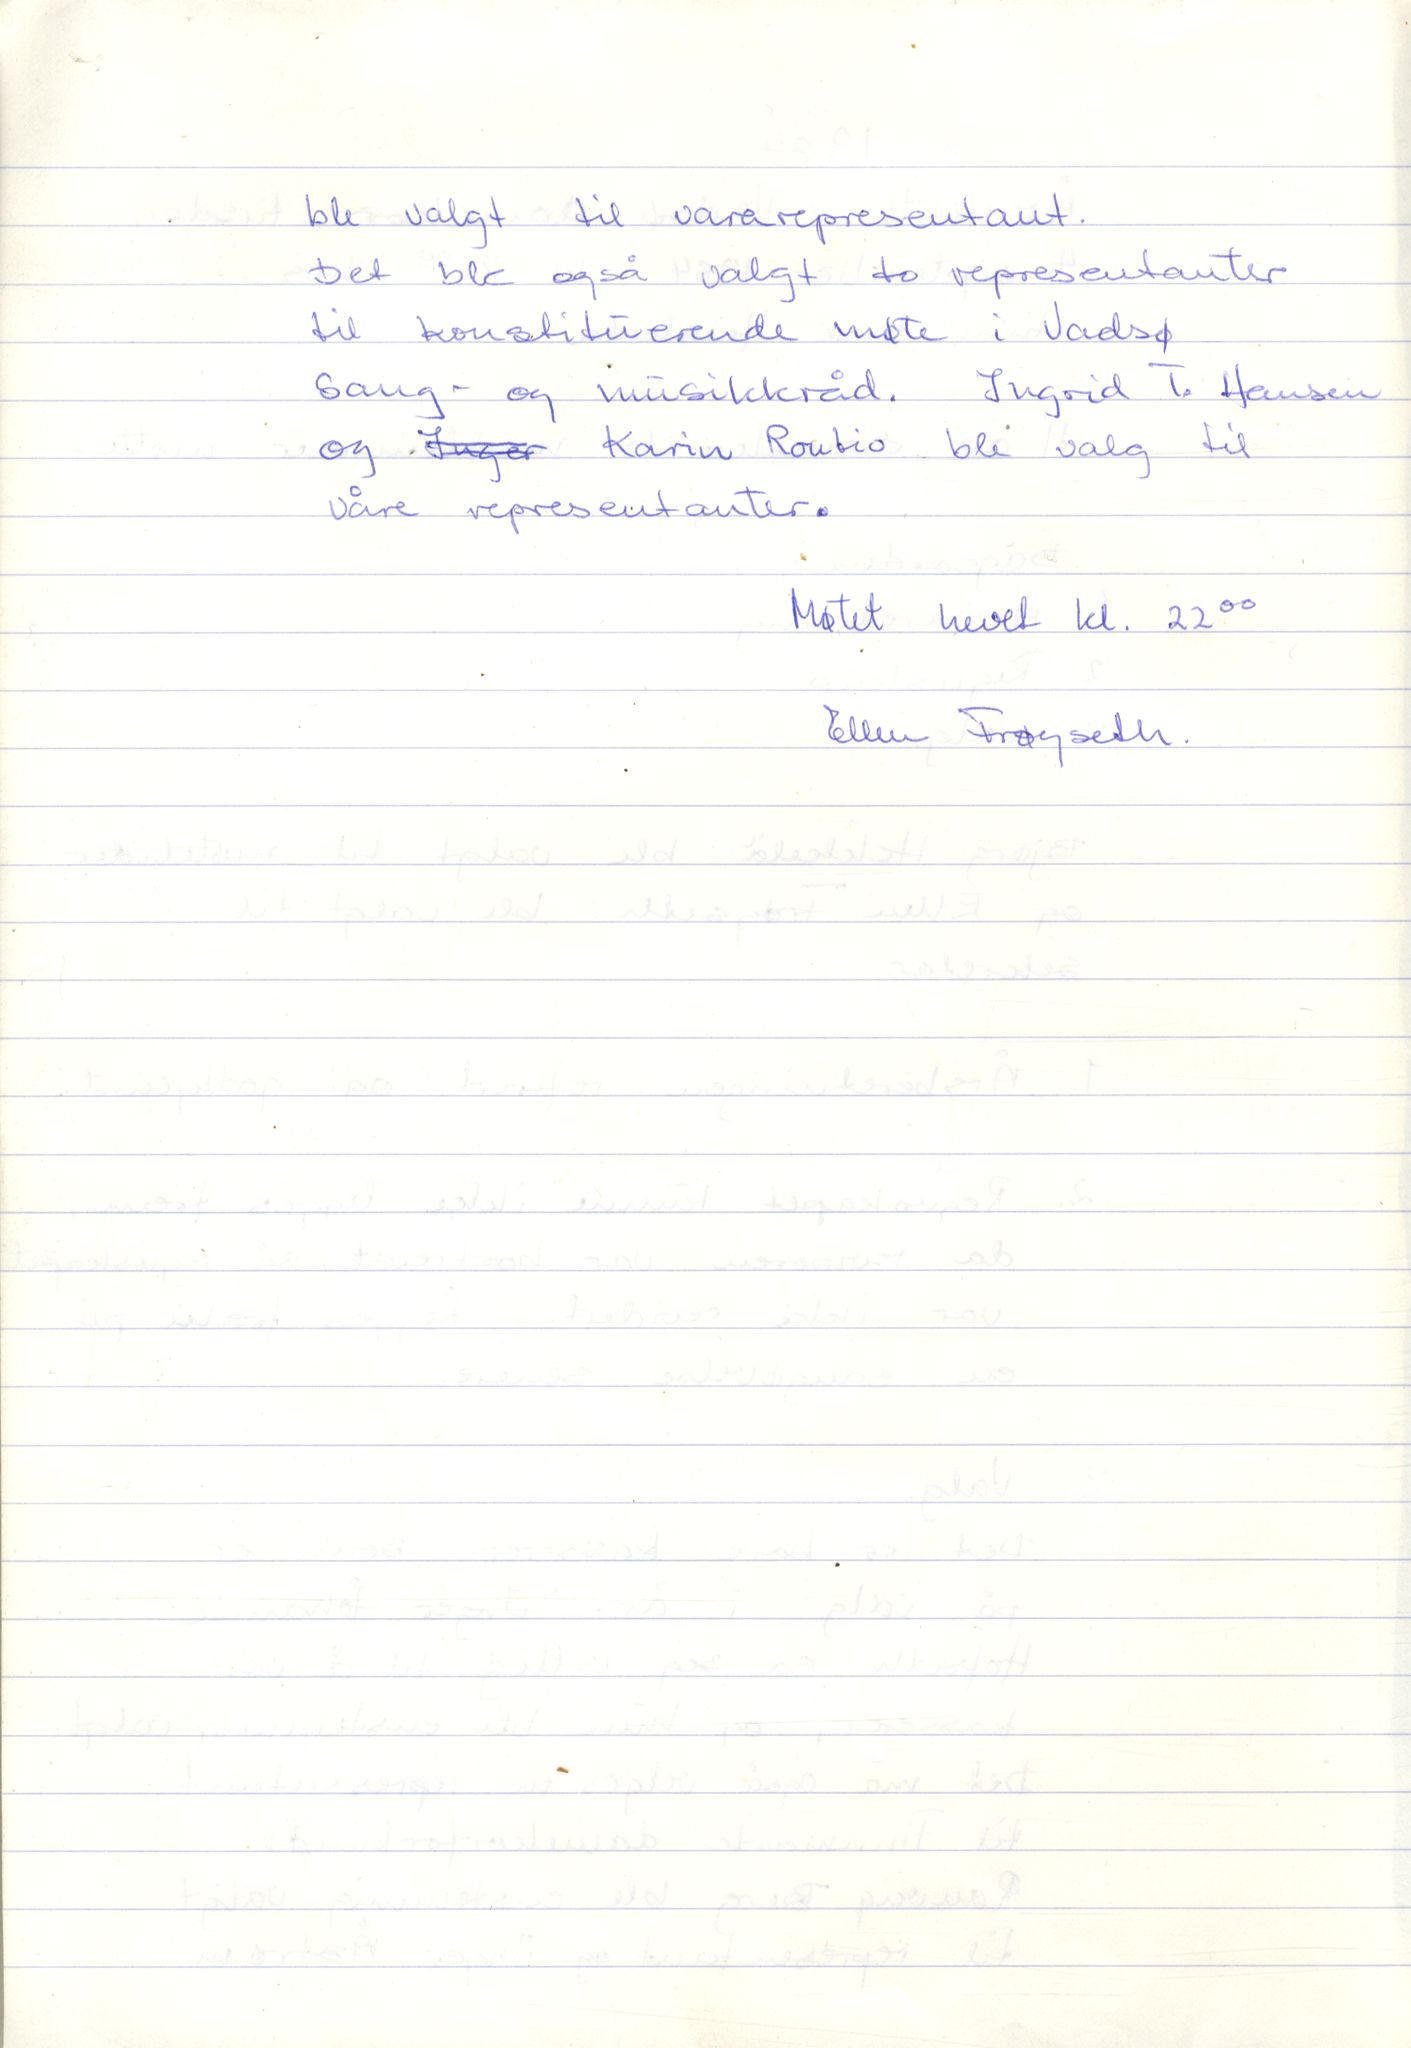 ble valgt til vararepresentant.
Det ble også valgt to representanter
til konstituerende møte i Vadsø
Sang- og musikkråd. Ingrid T. Hansen
og Inger Karin Routio ble valg til
våre representanter.
Møtet hevet kl. 22⁰⁰
Ellen Frøyseth.